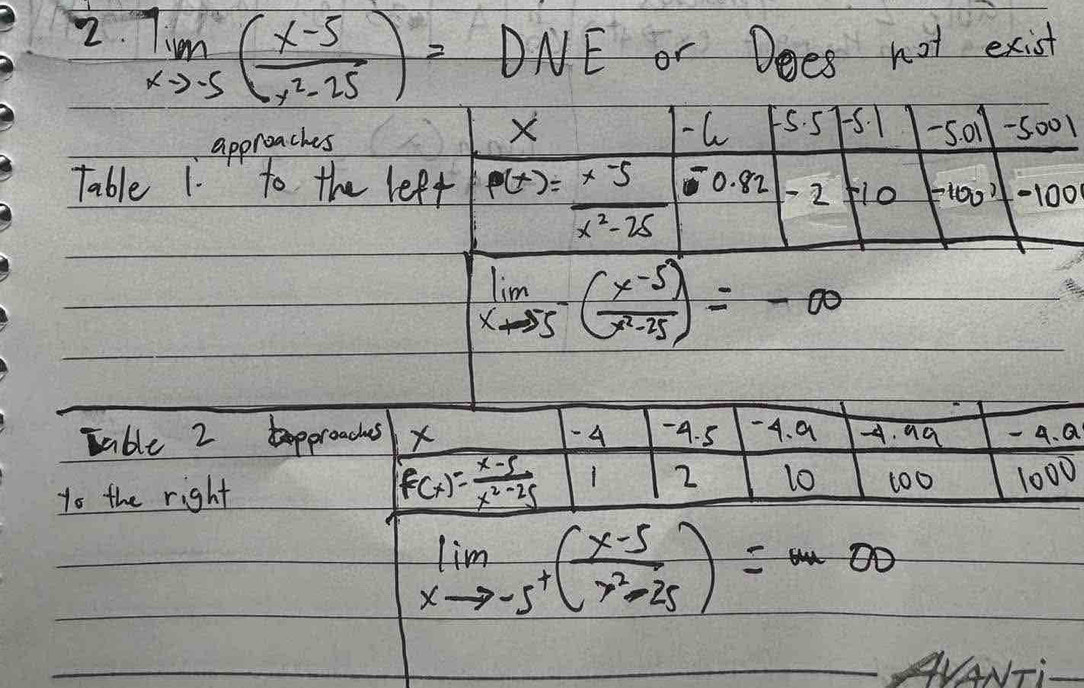 2. lim x→-5 (x-5 / x²-25) = DNE or Does not exist
Table 1. approaches to the left
x | -6 | -5.5 | -5.1 | -5.01 | -5.001
f(x) = x-5 / x²-25 | -0.82 | -2 | -10 | -100 | -1000
lim x→-5⁻ (x-5 / x²-25) = - ∞
Table 2 approaches to the right
x | -4 | -4.5 | -4.9 | -4.99 | -4.9
f(x) = x-5 / x²-25 | 1 | 2 | 10 | 100 | 1000
lim x→-5⁺ (x-5 / x²-25) = ∞
AVANTI